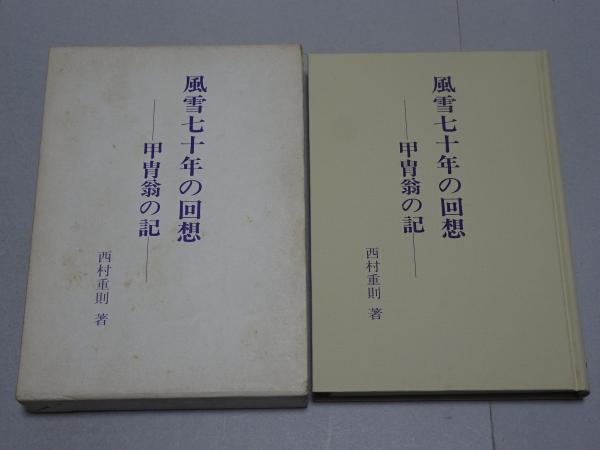 風雪七十年の回想
――甲冑翁の記――
西村重則 著
風雪七十年の回想
――甲冑翁の記――
西村重則 著